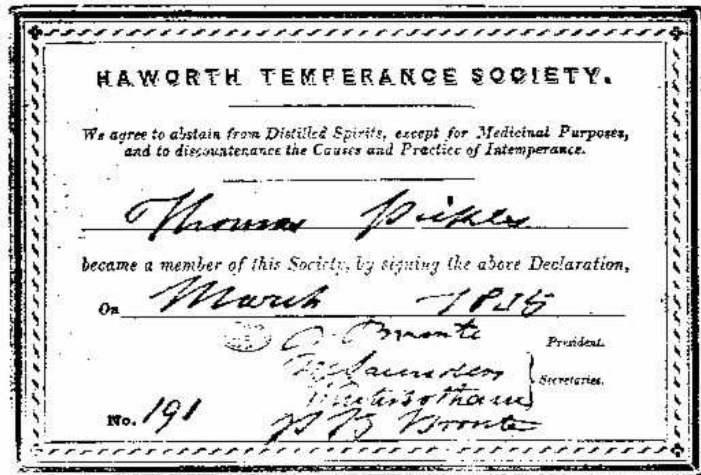 HAWORTH TEMPERANCE SOCIETY.
We agree to abstain from Distilled Spirits, except for Medicinal Purposes,
and to discountenance the Causes and Practice of Intemperance.
Thomas Pickles
became a member of this Society, by signing the above Declaration,
On March 1835
P. Bronte President.
M Saunders
Secretaries.
P B Bronte
No. 191